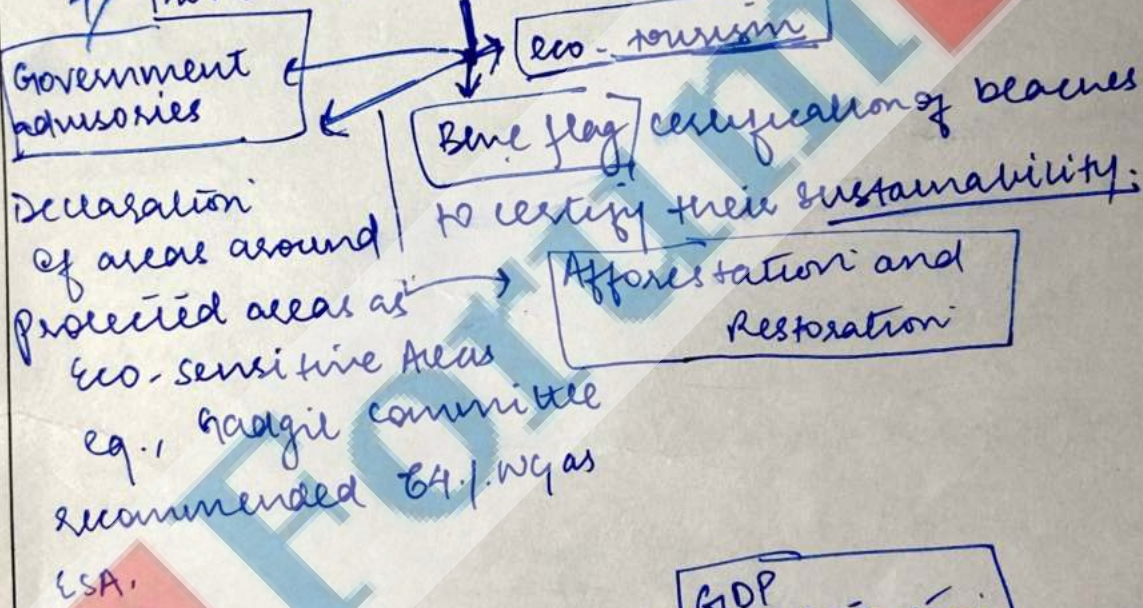 eco-tourism
Government
advisories
Blue flag certification of beaches
to certify their sustainability.
Declaration
of areas around
protected areas as
Eco-sensitive Areas
eg., Gadgil committee
recommended 64% WG as
ESA.
Afforestation and
Restoration
GDP
Forum